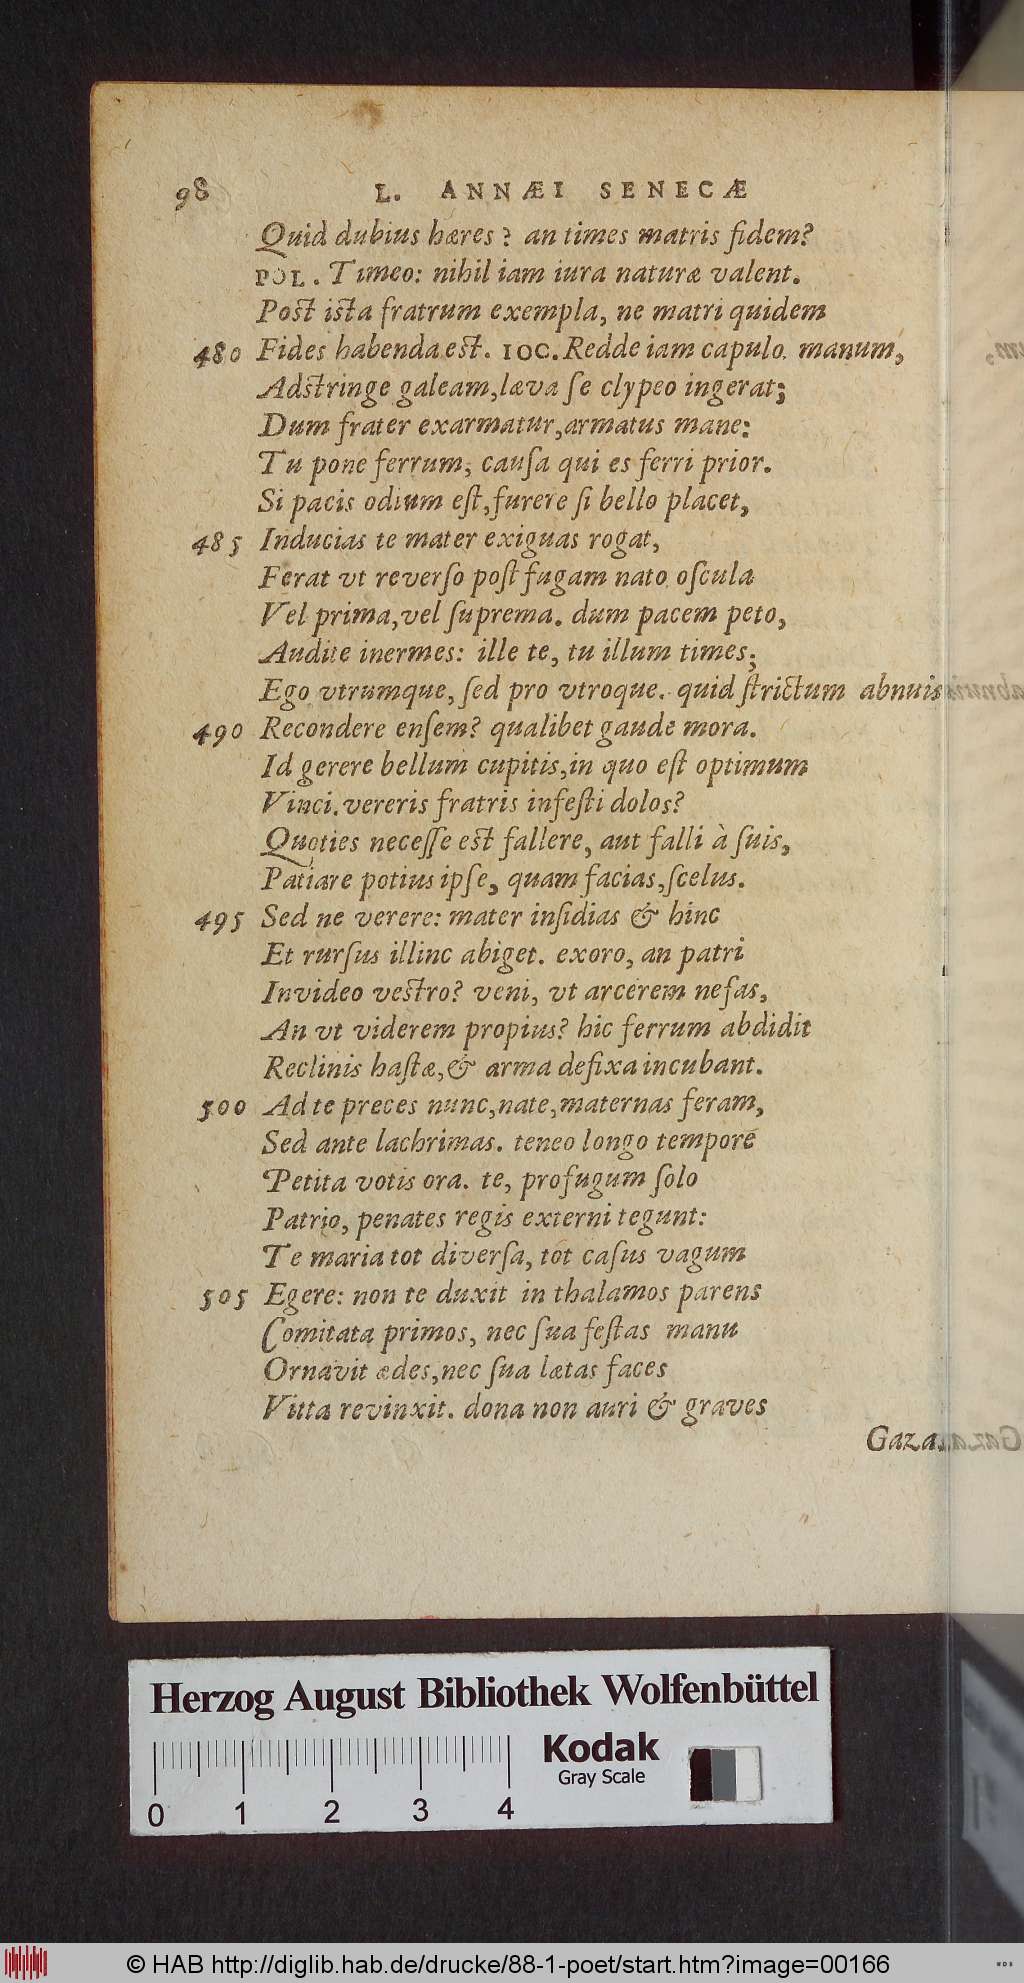 98 L. ANNÆI SENECÆ
Quid dubius hæres? an times matris fidem?
POL. Timeo: nihil iam iura naturæ valent.
Post ista fratrum exempla, ne matri quidem
480 Fides habenda est. IOC. Redde iam capulo manum,
Adstringe galeam, læva se clypeo ingerat;
Dum frater exarmatur, armatus mane:
Tu pone ferrum, causa qui es ferri prior.
Si pacis odium est, furere si bello placet,
485 Inducias te mater exiguas rogat,
Ferat vt reverso post fugam nato oscula
Vel prima, vel suprema. dum pacem peto,
Audite inermes: ille te, tu illum times;
Ego vtrumque, sed pro vtroque. quid strictum abnuis
490 Recondere ensem? qualibet gaude mora.
Id gerere bellum cupitis, in quo est optimum
Vinci. vereris fratris infesti dolos?
Quoties necesse est fallere, aut falli à suis,
Patiare potius ipse, quam facias, scelus.
495 Sed ne verere: mater insidias & hinc
Et rursus illinc abiget. exoro, an patri
Invideo vestro? veni, vt arcerem nefas,
An vt viderem propius? hic ferrum abdidit
Reclinis hastæ, & arma defixa incubant.
500 Ad te preces nunc, nate, maternas feram,
Sed ante lachrimas. teneo longo tempore
Petita votis ora. te, profugum solo
Patrio, penates regis externi tegunt:
Te maria tot diversa, tot casus vagum
505 Egere: non te duxit in thalamos parens
Comitata primos, nec sua festas manu
Ornavit ædes, nec sua lætas faces
Vitta revinxit. dona non auri & graves
Gazas
Herzog August Bibliothek Wolfenbüttel
Kodak
Gray Scale
0 1 2 3 4
© HAB http://diglib.hab.de/drucke/88-1-poet/start.htm?image=00166